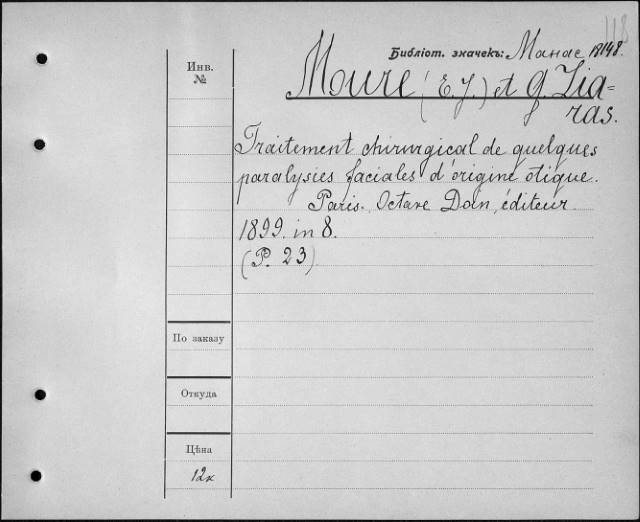 118
Библіот. значекъ: Манас 18148.
Инв.
№
Moure (E. J.) et G. Lia=
ras.
Traitement chirurgical de quelques
paralysies faciales d'origine otique.
Paris. Octave Doin, éditeur.
1899. in 8.
(P. 23)
По заказу
Откуда
Цѣна
12к